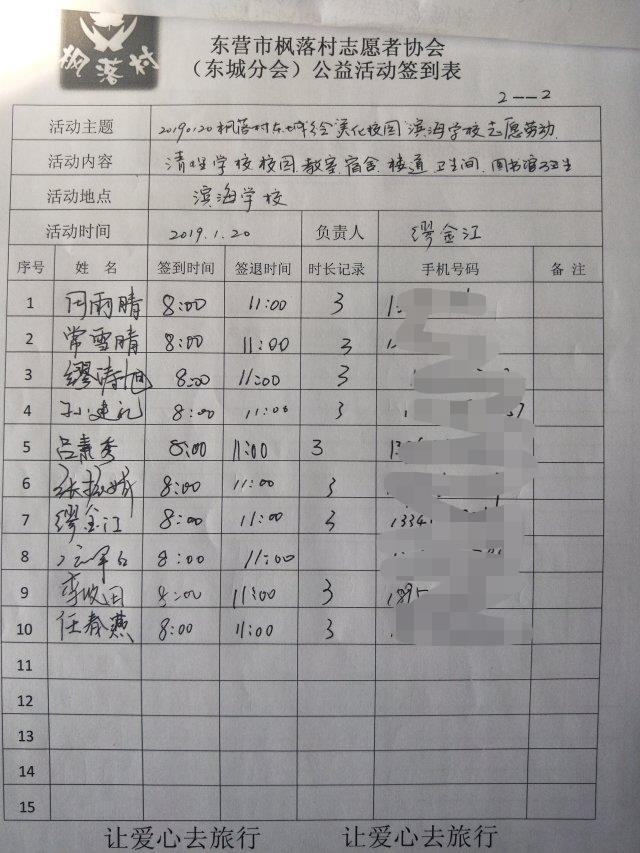 枫落村
东营市枫落村志愿者协会
（东城分会）公益活动签到表
2--2
活动主题 20190120枫落村东城绘美化校园 滨海学校志愿劳动
活动内容 清理学校校园 教室 宿舍 楼道 卫生间 图书馆卫生
活动地点 滨海学校
活动时间 2019.1.20 负责人 缪金江
序号 姓 名 签到时间 签退时间 时长记录 手机号码 备 注
1 闫雨晴 8:00 11:00 3
2 常雪晴 8:00 11:00 3
3 缪涛旭 8:00 11:00 3
4 8:00 11:00 3
5 吕素香 8:00 11:00 3
6 8:00 11:00 3
7 缪金江 8:00 11:00 3 1334
8 8:00 11:00
9 8:00 11:00 3
10 任春燕 8:00 11:00 3
11
12
13
14
15
让爱心去旅行 让爱心去旅行